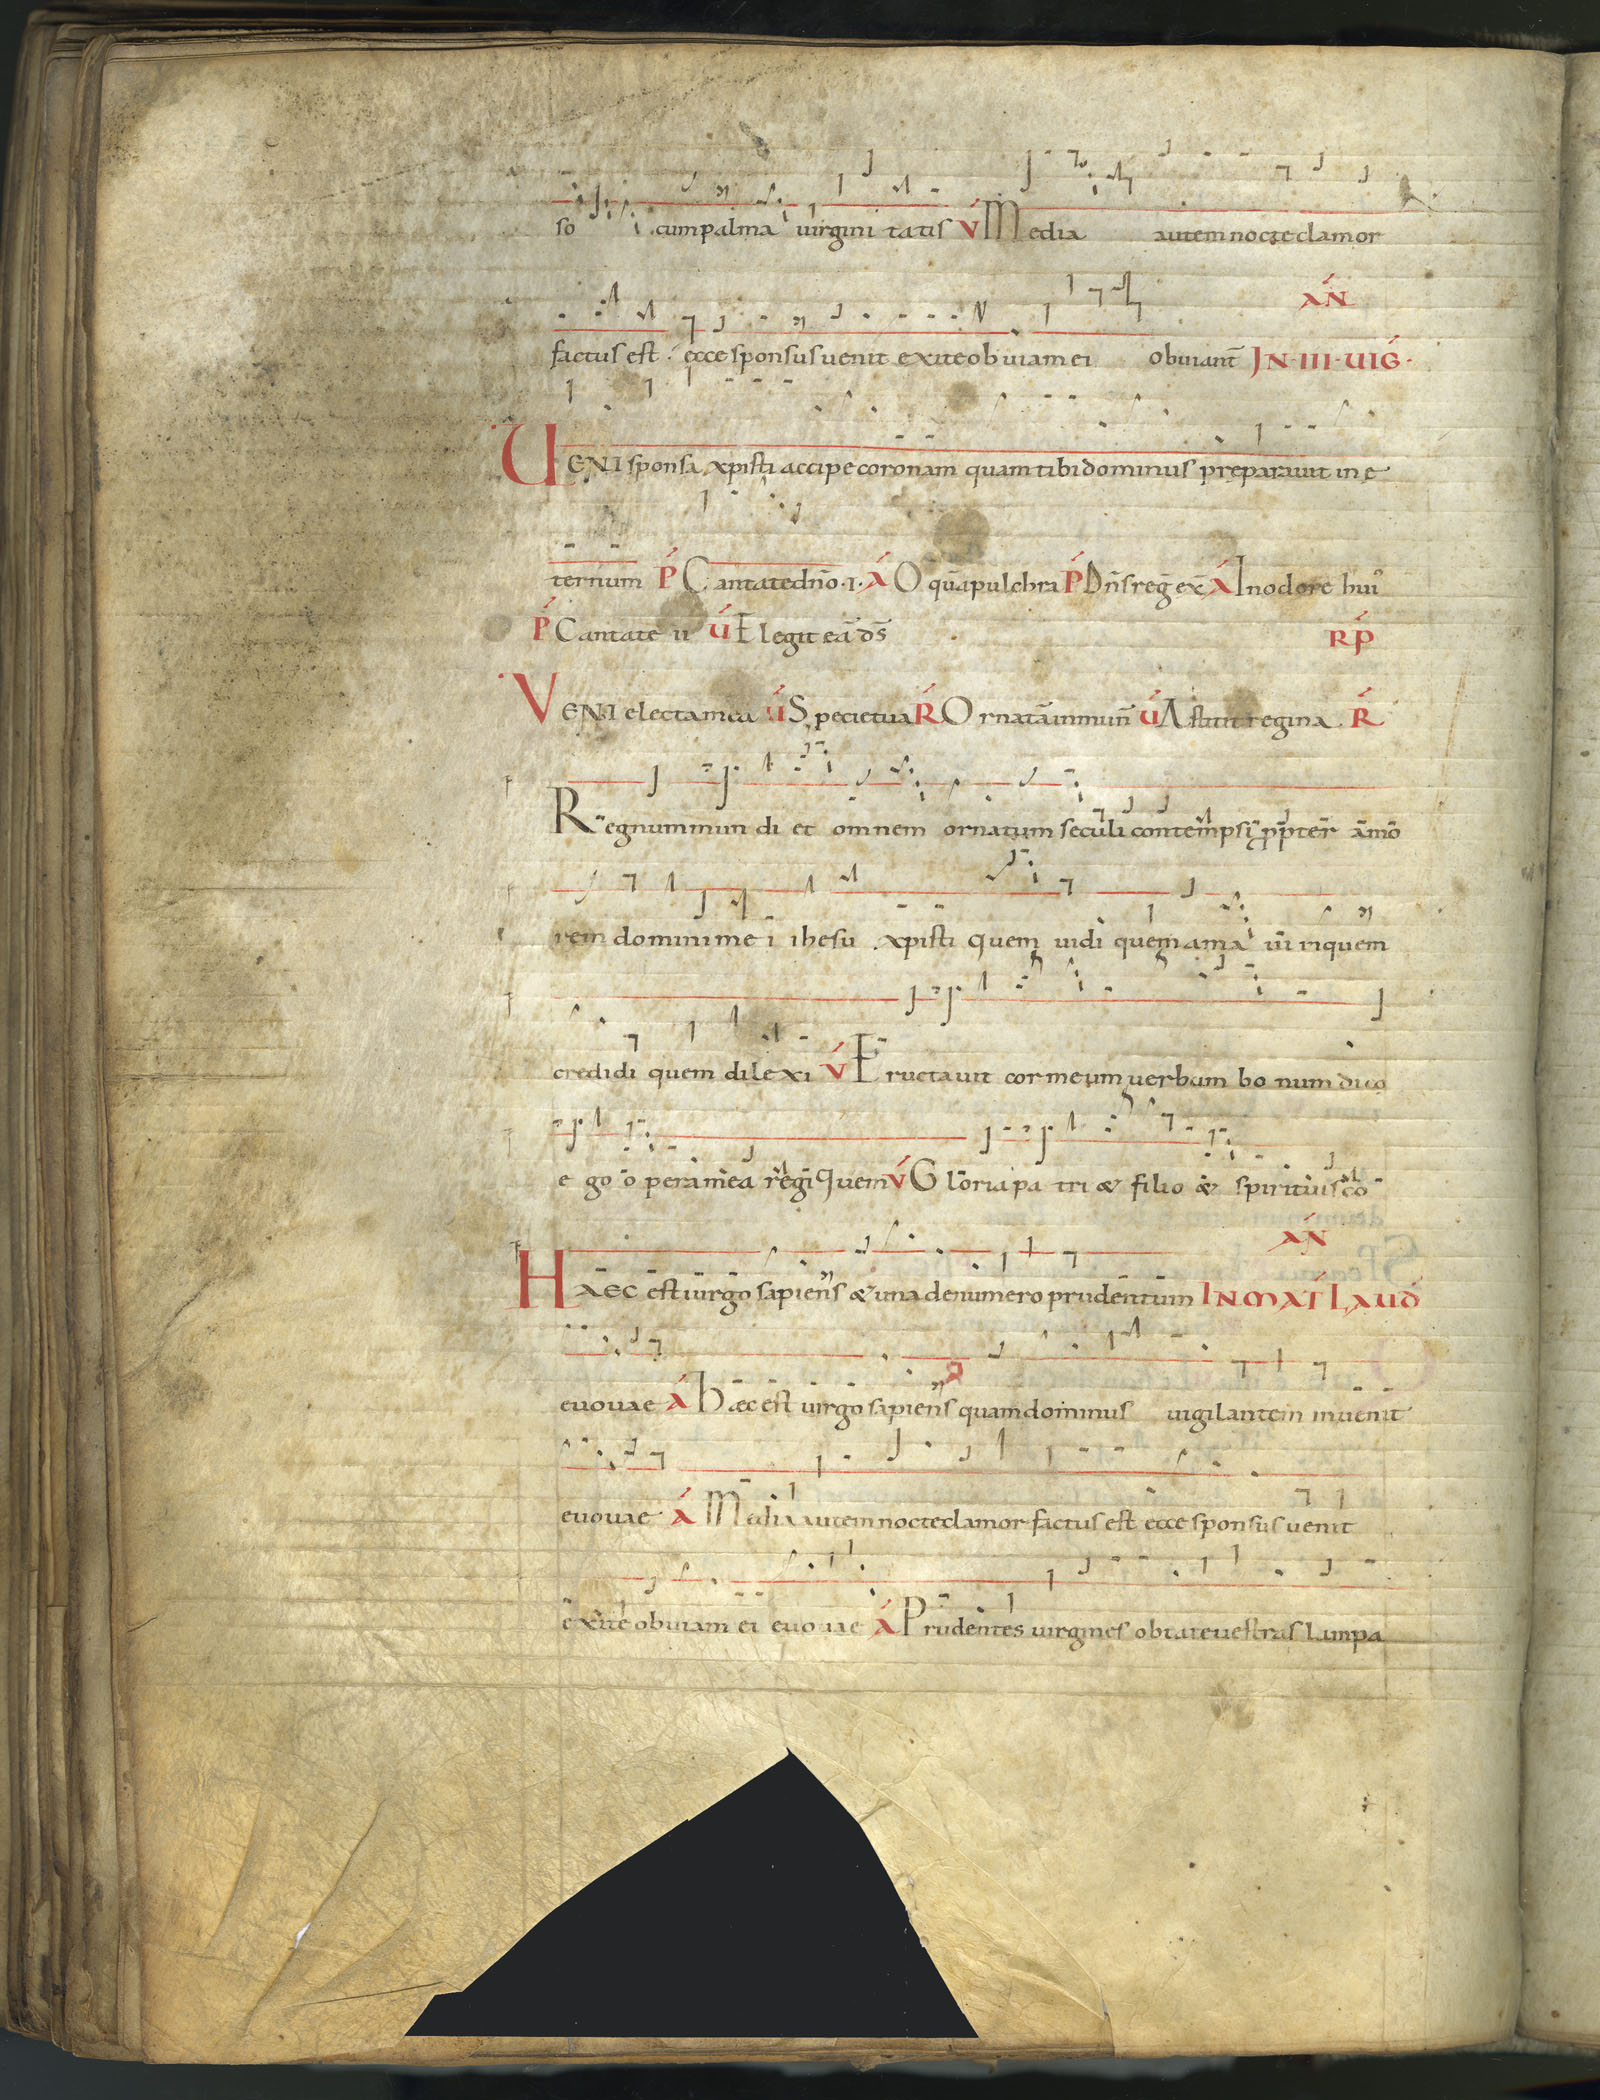 so cum palma uirgini tatis V Media autem nocte clamor
factus est ecce sponsus uenit exite obuiam ei obuiant̄ AN̄ IN · III · UIG̃ ·
UENI sponsa xpisti accipe coronam quam tibi dominus pręparauit in ę
ternum P Cantate dñō · I · A O quā pulchra P Dn̄s reg̃ ex̄ A In odore hui᾽
P Cantate II U Elegit eā d̄s RP
VENI electa mea U Specie tua R Ornatā in mun̄ U Astitit regina R
Regnum mun di et omnem ornatum seculi contempsi ꝓpter amo
rem domini me i ihesu xpisti quem uidi quem ama ui in quem
credidi quem dilexi V Eructauit cor meum uerbum bo num dico
e go o pera mea regi Quem V Gloria pa tri & filio & spiritui sc̄o
HAEC est uirgo sapiens & una de numero prudentum AN̄ IN MAT̄ LAUD̄
euouae A Haec est uirgo sapiens quam dominus uigilantem inuenit
euouae A Media autem nocte clamor factus est ecce sponsus uenit
exite obuiam ei euouae A Prudentes uirgines obtate uestras lampa